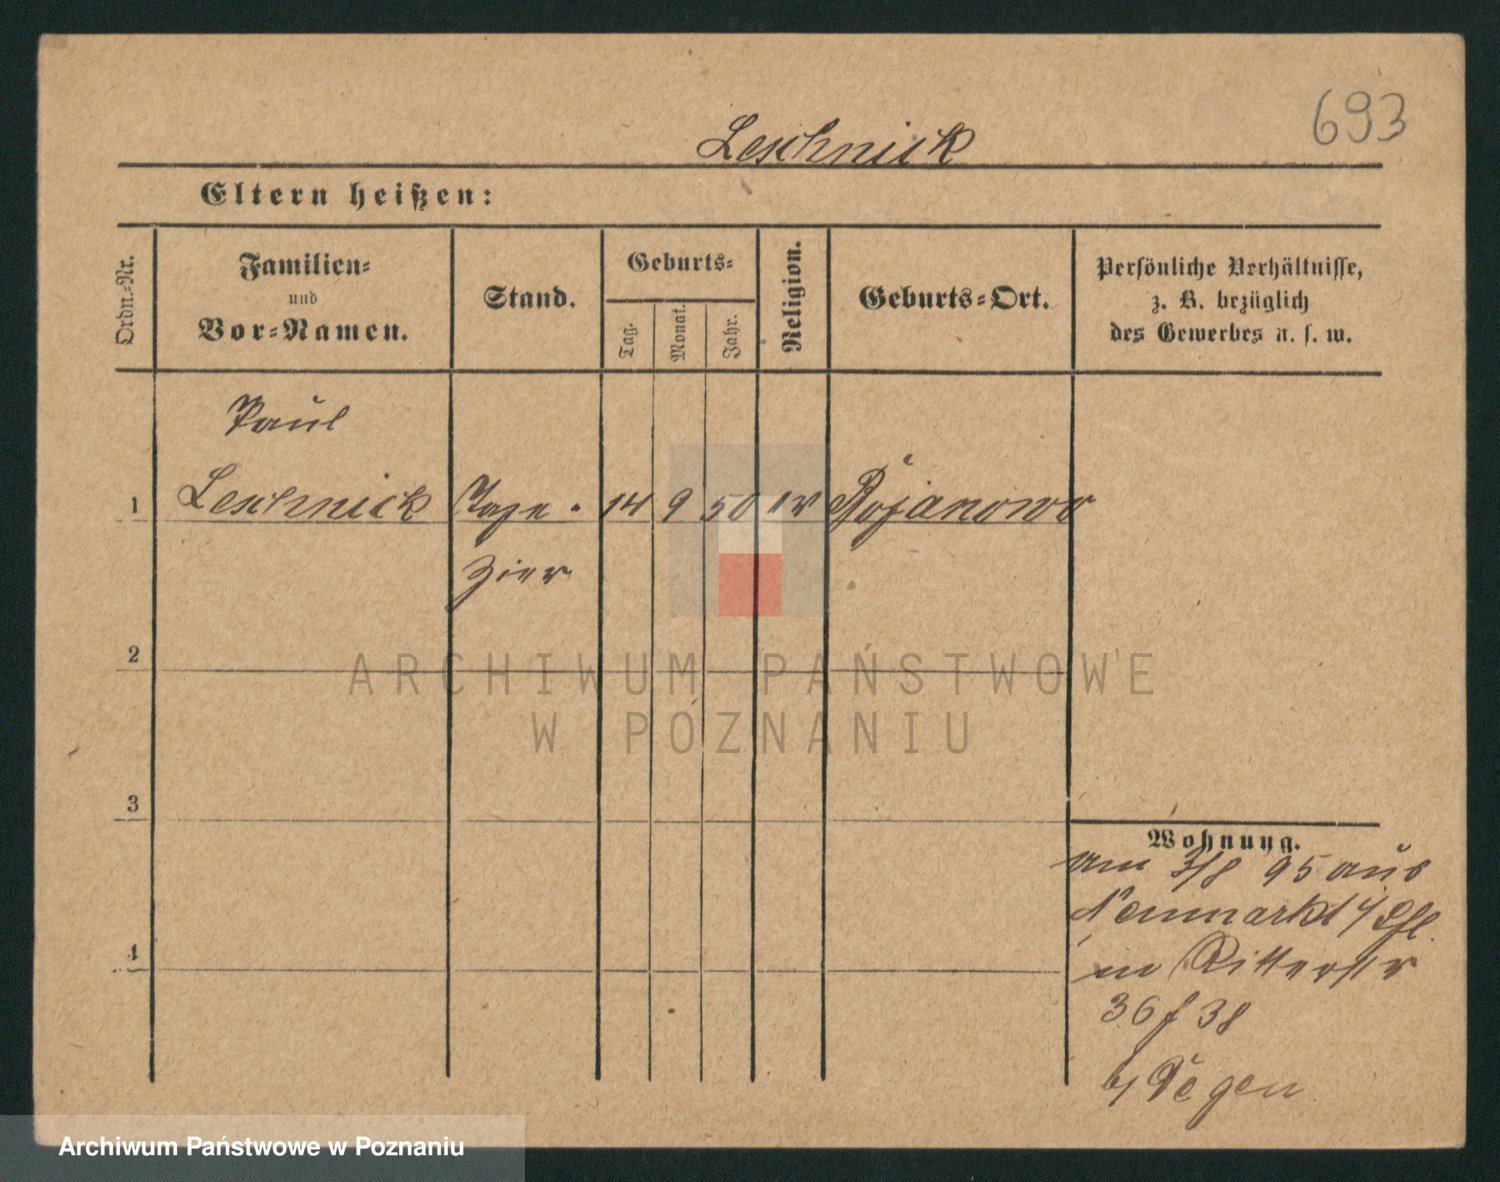 693
Leschnick
Eltern heißen:
Ordn.-Nr.
Familien-
und
Vor-Namen.
Stand.
Geburts-
Tag.
Monat.
Jahr.
Religion.
Geburts-Ort.
Persönliche Verhältnisse,
z. B. bezüglich
des Gewerbes u. s. w.
Paul
1 Leschnick Tape- 14 9 50 ev Bojanowo
zier
2
ARCHIWUM PAŃSTWOWE
W POZNANIU
3
Wohnung.
am 3/8 95 aus
Neumarkt i/Schl.
in Ritterstr
36 / 38
b/ Degen
4
Archiwum Państwowe w Poznaniu